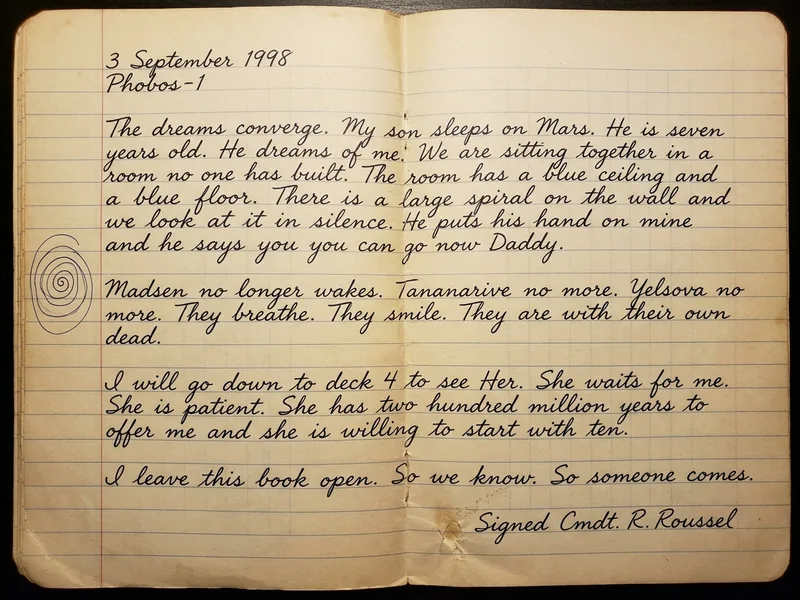 3 September 1998
Phobos-1
The dreams converge. My son sleeps on Mars. He is seven
years old. He dreams of me. We are sitting together in a
room no one has built. The room has a blue ceiling and
a blue floor. There is a large spiral on the wall and
we look at it in silence. He puts his hand on mine
and he says you you can go now Daddy.
Madsen no longer wakes. Tananarive no more. Yelsova no
more. They breathe. They smile. They are with their own
dead.
I will go down to deck 4 to see Her. She waits for me.
She is patient. She has two hundred million years to
offer me and she is willing to start with ten.
I leave this book open. So we know. So someone comes.
Signed Cmdt. R. Roussel